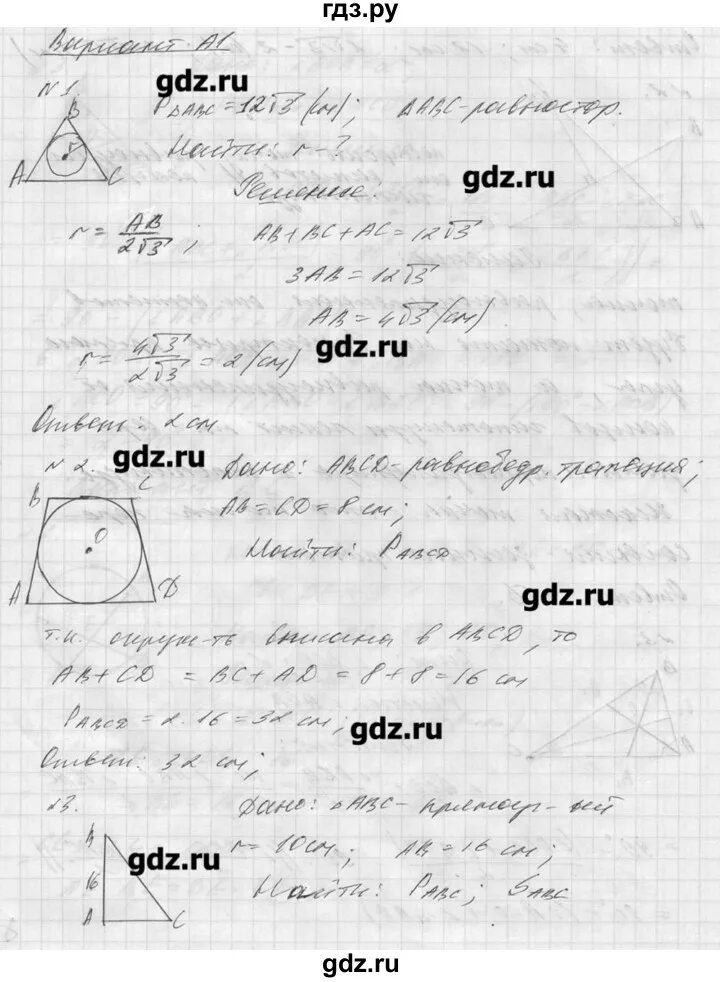 гдз.ру
Вариант А1
gdz.ru
№1.
B
P△ABC = 12√3 (см); △ABC - равностор.
r
A C
Найти: r - ?
gdz.ru
Решение:
r = AB/2√3; AB + BC + AC = 12√3
3AB = 12√3
AB = 4√3 (см)
gdz.ru
r = 4√3/2√3 = 2 (см)
Ответ: 2 см
gdz.ru
№2. Дано: ABCD - равнобедр. трапеция;
B C
AB = CD = 8 см;
O
Найти: PABCD
A D
gdz.ru
т.к. окруж-ть вписана в ABCD, то
AB + CD = BC + AD = 8 + 8 = 16 см
PABCD = 2 . 16 = 32 см;
gdz.ru
Ответ: 32 см;
№3. Дано: △ABC - прямоуг-ый
B
gdz.ru
r = 10 см; AB = 16 см;
16
Найти: PABC; SABC
A C
gdz.ru